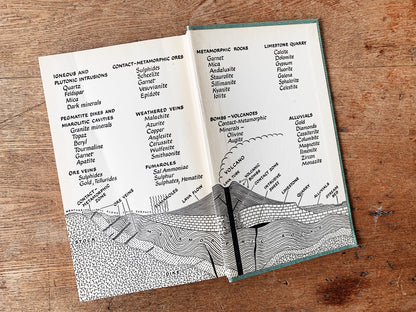 IGNEOUS AND
PLUTONIC INTRUSIONS
Quartz
Feldspar
Mica
Dark minerals
PEGMATITE DIKES AND
MIAROLITIC CAVITIES
Granite minerals
Topaz
Beryl
Tourmaline
Garnet
Apatite
ORE VEINS
Sulphides
Gold, Tellurides
CONTACT-METAMORPHIC ORES
Sulphides
Scheelite
Garnet
Vesuvianite
Epidote
WEATHERED VEINS
Malachite
Azurite
Copper
Anglesite
Cerussite
Wulfenite
Smithsonite
FUMAROLES
Sal Ammoniac
Sulphur
Sulphates, Hematite
METAMORPHIC ROCKS
Garnet
Mica
Andalusite
Staurolite
Sillimanite
Kyanite
Iolite
BOMBS - VOLCANOES
Contact-Metamorphic
Minerals -
Olivine
Augite
LIMESTONE QUARRY
Calcite
Dolomite
Gypsum
Fluorite
Galena
Sphalerite
Celestite
ALLUVIALS
Gold
Diamonds
Cassiterite
Columbite
Magnetite
Ilmenite
Zircon
Monazite
CONTACT-
METAMORPHIC
ZONE
ORE VEINS
FUMAROLES
LAVA FLOW
VOLCANO
VOLCANIC
BOMBS
CONTACT ZONE
LIMESTONE
QUARRY
ALLUVIALS
STREAM
BED
STOCK
DIKE